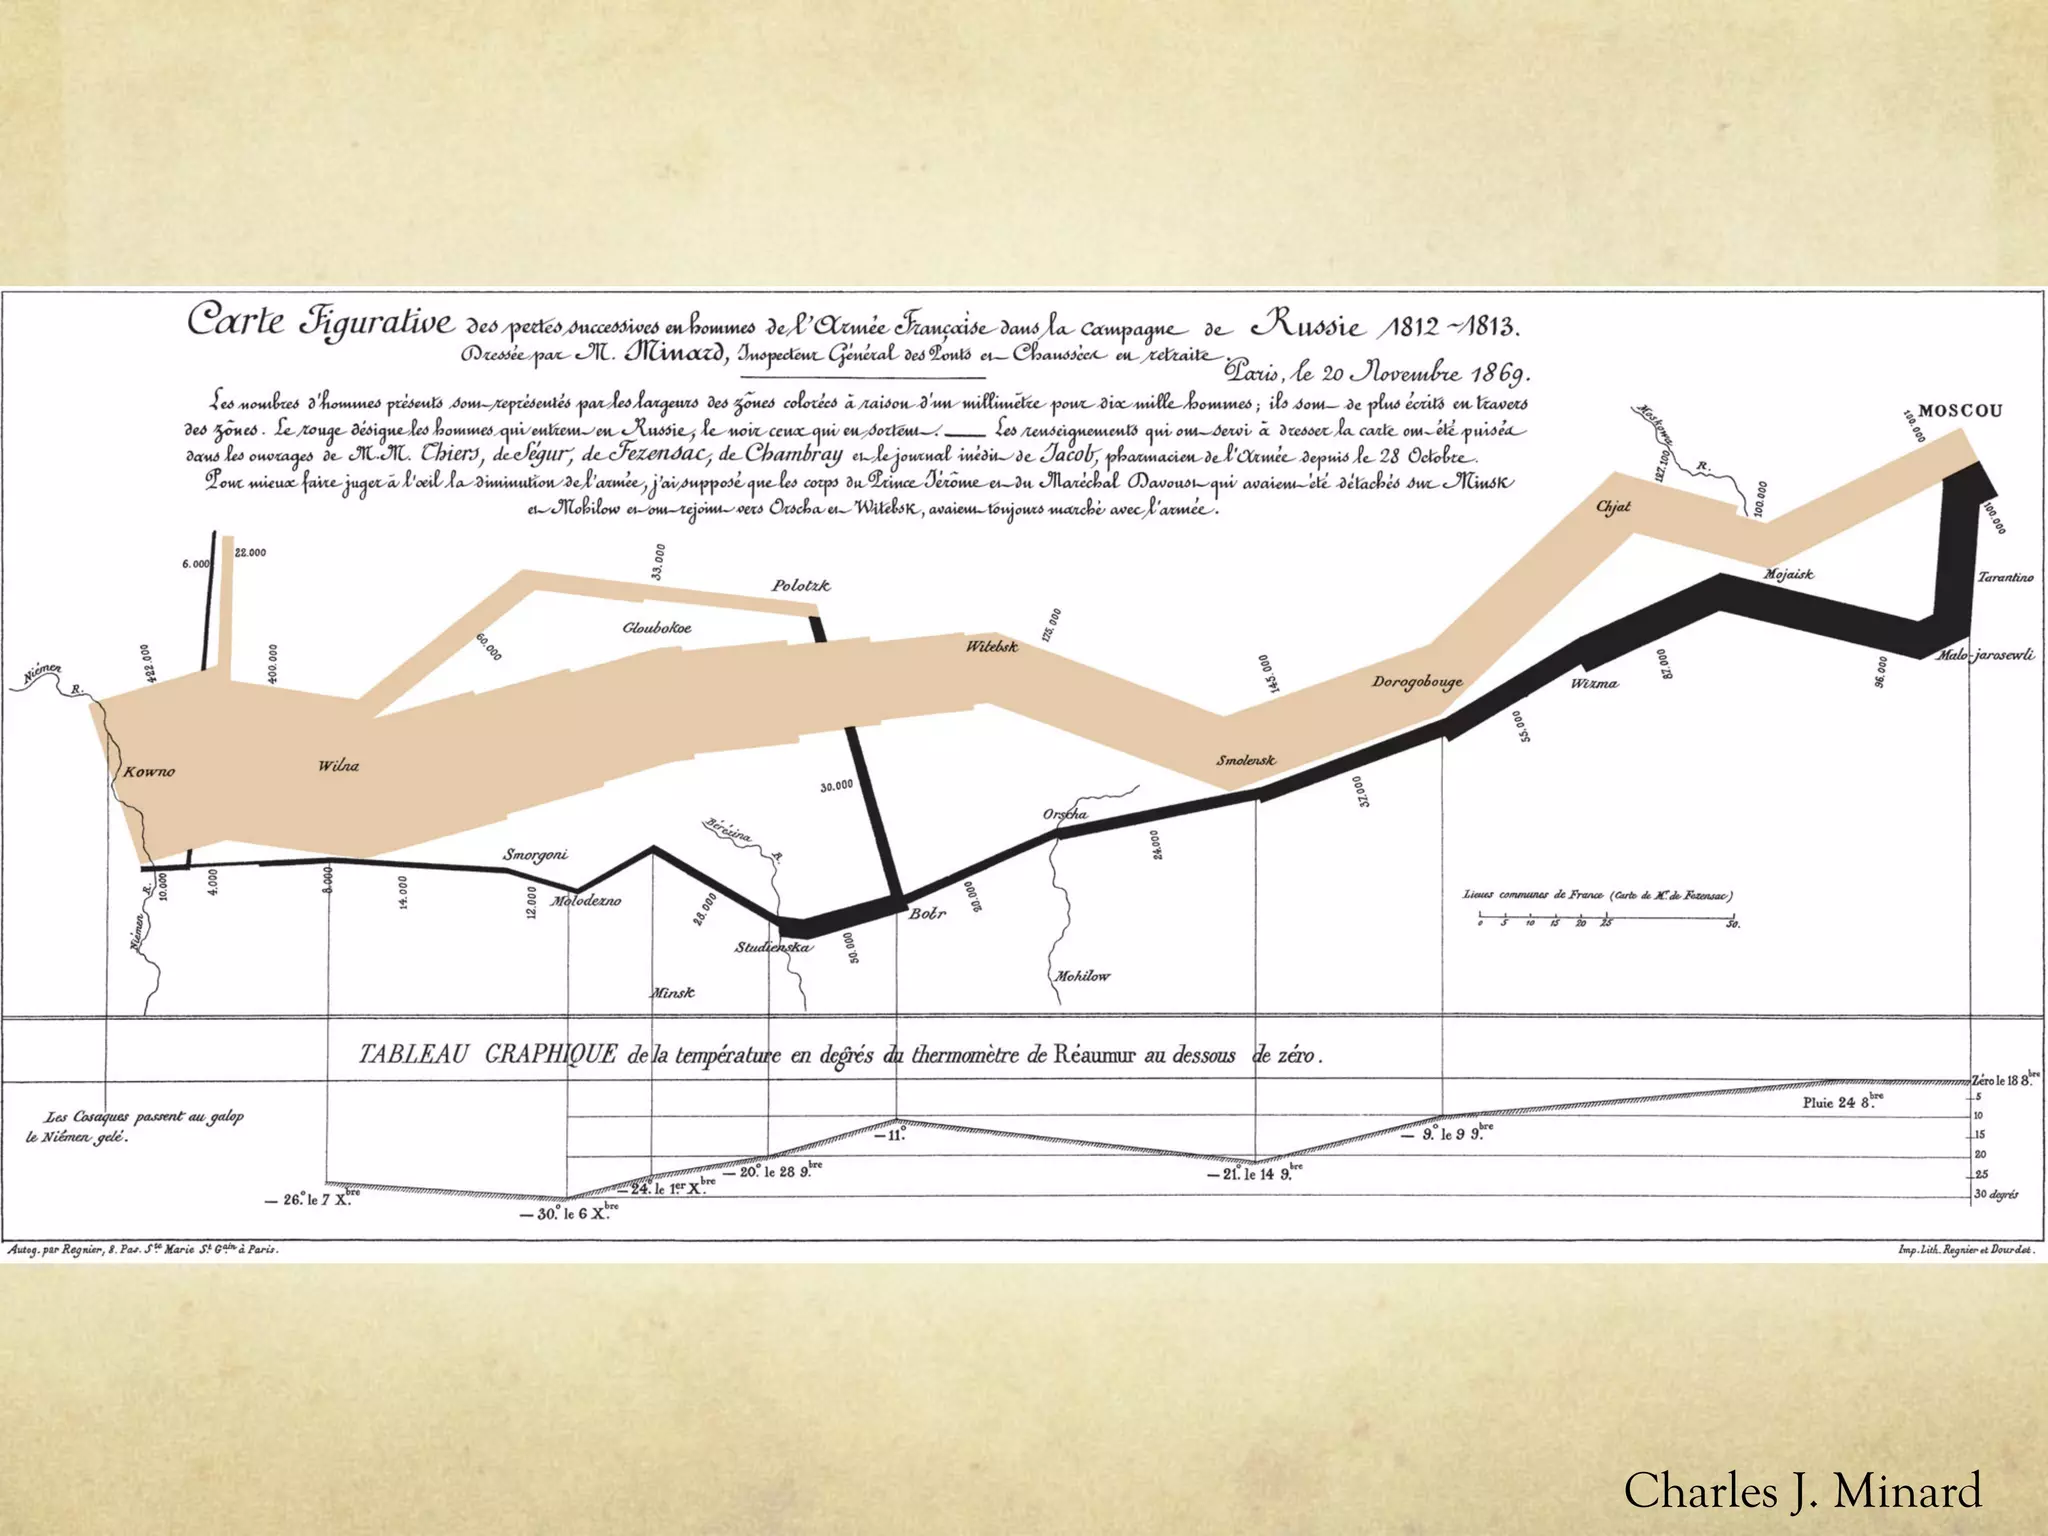 Carte Figurative des pertes successives en hommes de l'Armée Française dans la campagne de Russie 1812~1813.
Dressée par M. Minard, Inspecteur Général des Ponts et Chaussées en retraite.
Paris, le 20 Novembre 1869.
Les nombres d'hommes présents sont représentés par les largeurs des zônes colorées à raison d'un millimètre pour dix mille hommes; ils sont de plus écrits en travers
des zônes. Le rouge désigne les hommes qui entrent en Russie, le noir ceux qui en sortent. — Les renseignements qui ont servi à dresser la carte ont été puisés
dans les ouvrages de M.M. Thiers, de Ségur, de Fezensac, de Chambray et le journal inédit de Jacob, pharmacien de l'Armée depuis le 28 Octobre.
Pour mieux faire juger à l'œil la diminution de l'armée, j'ai supposé que les corps du Prince Jérôme et du Maréchal Davoust qui avaient été détachés sur Minsk
et Mohilow et ont rejoint vers Orscha et Witebsk, avaient toujours marché avec l'armée.
Moskowa R.
100.000
MOSCOU
127.100
100.000
Chjat
100.000
6.000
22.000
33.000
Polotzk
Mojaisk
Tarantino
Gloubokoe
60.000
175.000
Witebsk
422.000
400.000
Niémen R.
145.000
Dorogobouge
Wizma
87.000
96.000
Malo-jarosewli
55.000
Kowno
Wilna
Smolensk
30.000
37.000
Orscha
Bérézina R.
24.000
Smorgoni
10.000
4.000
8.000
14.000
12.000
Molodezno
28.000
20.000
Bobr
Niémen R.
Studienska
50.000
Mohilow
Minsk
Lieues communes de France (Carte de Mr. de Fezensac)
0 5 10 15 20 25 50.
TABLEAU GRAPHIQUE de la température en degrés du thermomètre de Réaumur au dessous de zéro.
Les Cosaques passent au galop
le Niémen gelé.
Zéro le 18 8.bre
Pluie 24 8.bre
5
10
15
20
25
30 degrés
— 11.°
— 9.° le 9 9.bre
— 20.° le 28 9.bre
— 21.° le 14 9.bre
— 24.° le 1.er X.bre
— 26.° le 7 X.bre
— 30.° le 6 X.bre
Autog. par Regnier, 8. Pas. Ste. Marie St. Gain à Paris.
Imp. Lith. Regnier et Dourdet.
Charles J. Minard